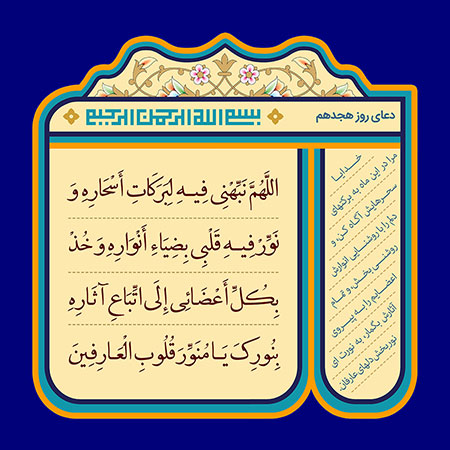 دعای روز هجدهم
بسم الله الرحمن الرحیم
اللَّهُمَّ نَبِّهْنِی فِیهِ لِبَرَکَاتِ أَسْحَارِهِ وَ
نَوِّرْ فِیهِ قَلْبِی بِضِیَاءِ أَنْوَارِهِ وَ خُذْ
بِکُلِّ أَعْضَائِی إِلَى اتِّبَاعِ آثَارِهِ
بِنُورِکَ یَا مُنَوِّرَ قُلُوبِ الْعَارِفِینَ
خدایا
مرا در این ماه به برکتهای
سحرهایش آگاه کن، و
دلم را با روشنایی انوارش
روشنی بخش و تمام
اعضایم را به پیروی
آثارش بگمار، به نورت ای
نوربخش دلهای عارفان.